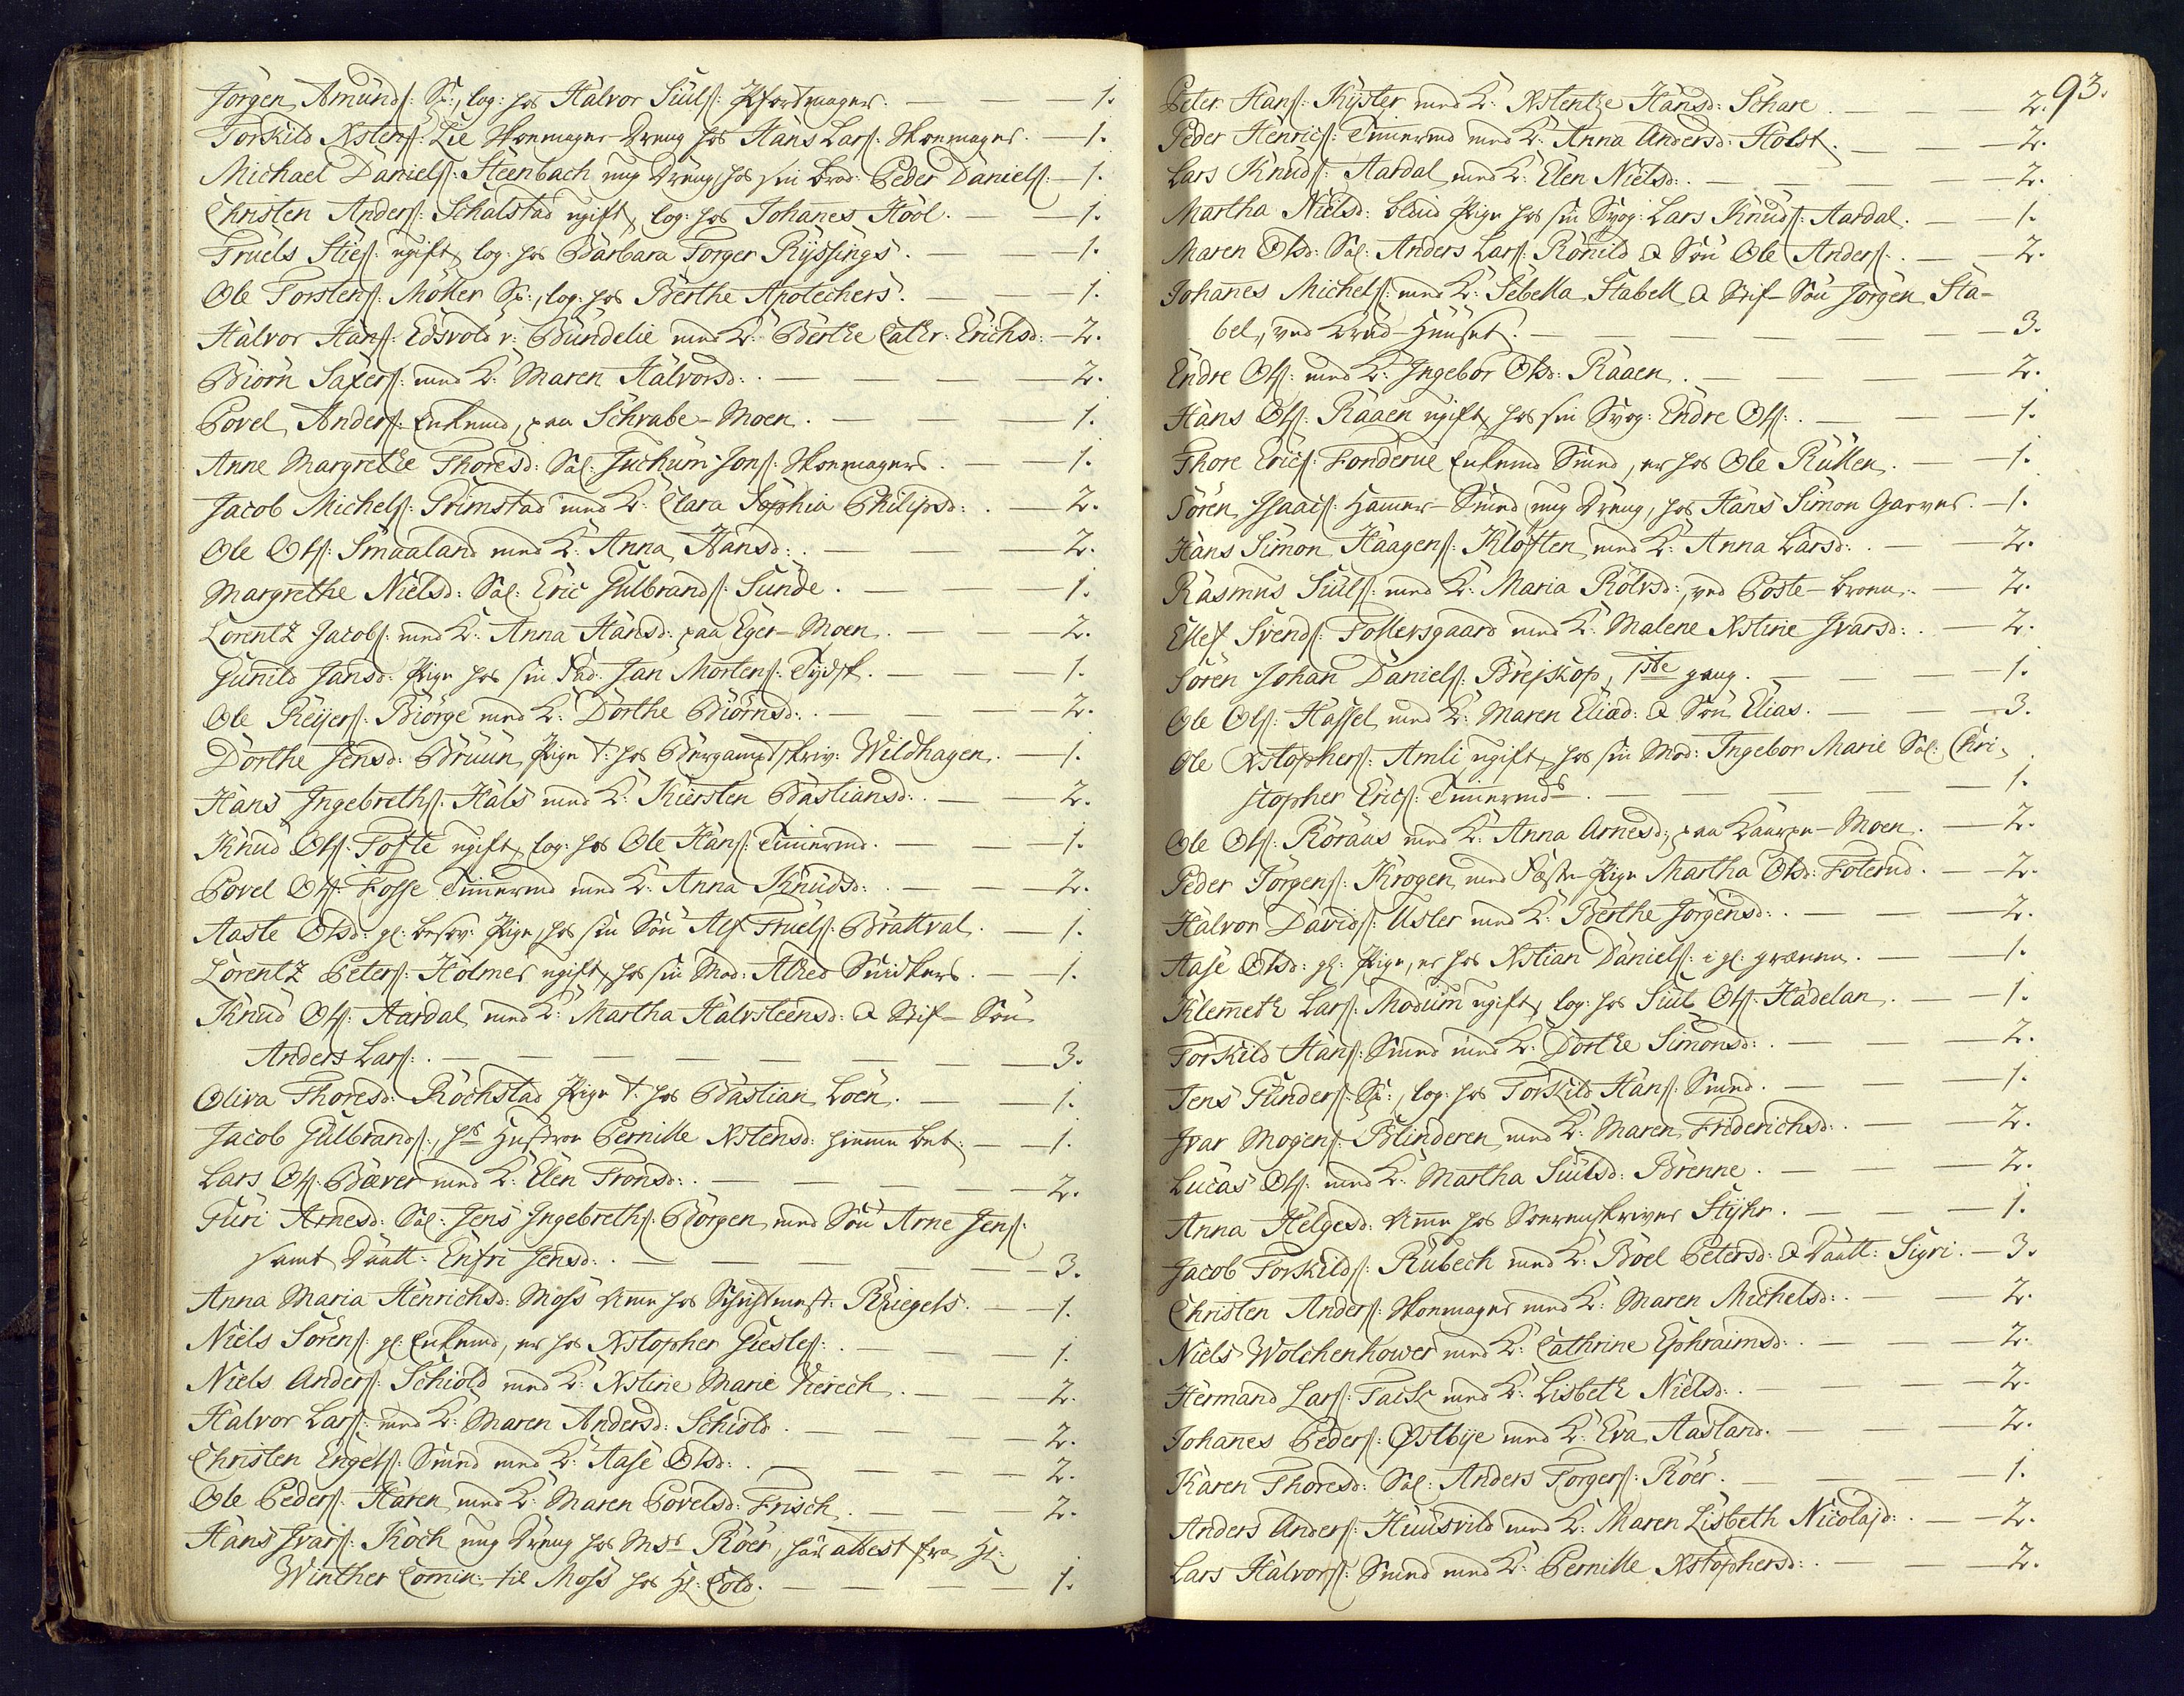 Jørgen Amunds: S:, log: hos Halvor Siuls: Pfortmager. — 1.
Torkild Xstens: Lie Skoemager Dreng hos Hans Lars: Skoemager. — 1.
Michael Daniels: Steenbach ung Dreng, hos sin Brod: Peder Daniels: — 1.
Christen Anders: Schalstad ugift, log: hos Johanes Hool. — 1.
Truels Sties: ugift, log: hos Barbara Torger Ryssings. — 1.
Ole Torstens: Møller S:, log: hos Berthe Apotechers. — 1.
Halvor Hans: Edsvold v: Bundelie med K: Berthe Cathr: Erichsd: — 2.
Biørn Saxers: med K: Maren Halvorsd: — 2.
Povel Anders: Enkemd, paa Schrabe-Moen. — 1.
Anne Margrethe Thoresd: Sal: Juchum Jons: Skoemagers. — 1.
Jacob Michels: Trimstad med K: Clara Sophia Philipsd: — 2.
Ole Ols: Smaaland med K: Anna Hansd: — 2.
Margrethe Nielsd: Sal: Eric Gulbrands: Sunde. — 1.
Lorentz Jacobs: med K: Anna Hansd: paa Eger-Moen. — 2.
Gunild Jansd: Pige hos sin Fad: Jan Mortens: Tydsk. — 1.
Ole Reijers: Biørge med K: Dorthe Biørnsd: — 2.
Dorthe Jensd: Bruun, Pige t: hos Bergamptskriv: Wildhagen. — 1.
Hans Ingebreths: Hals med K: Kiersten Bastiansd: — 2.
Knud Ols: Tofte ugift, log: hos Ole Hans: Timermd. — 1.
Povel Ols: Fosse Timermd med K: Anna Knudsd: — 2.
Aaste Olsd: gl: besov: Pige, hos sin Søn Alf Truels: Brattval. — 1.
Lorentz Peters: Holmer ugift, hos sin Mod: Alhed Snidkers. — 1.
Knud Ols: Aardal, med K: Martha Halvsteensd: & Stif-Søn
Anders Lars: — 3.
Oliva Thoresd: Rochstad Pige t: hos Bastian Loen. — 1.
Jacob Gulbrands:, hs Hustroe Pernille Xstensd: hiemme bet: — 1.
Lars Ols: Bæver med K: Elen Tronsd: — 2.
Turi Arnesd: Sal: Jens Ingebreths: Børgen, med Søn Arne Jens:
samt Daatt: Enfri Jensd: — 3.
Anna Maria Henrichsd: Moss Ame hos Schichtmest: Rhiegels. — 1.
Niels Sørens: gl: Enkemd, er hos Xstopher Giestes: — 1.
Niels Anders: Schiold med K: Xstine Marie Kierech. — 2.
Halvor Lars: med K: Maren Andersd: Schiold. — 2.
Christen Engels: Smed med K: Aase Olsd: — 2.
Ole Peders: Haren, med K: Maren Povelsd: Frisch. — 2.
Hans Ivars: Koch ung Dreng hos Msr Røer, har attest fra H:
Winther Comin: til Moss hos H: Cold. — 1.
93.
Peter Hans: Kyster med K: Xstentze Hansd: Schare — 2.
Peder Henrics: Timermd med K: Anna Andersd: Holst. — 2.
Lars Knuds: Aardal, med K: Elen Nielsd: — 2.
Martha Nielsd: blind Pige hos sin Svog: Lars Knuds: Aardal. — 1.
Maren Olsd: Sal: Anders Lars: Ronild & Søn Ole Anders: — 2.
Johanes Michels: med K: Sebella Stabell & Stif-Søn Jørgen Sta-
bel, ved Brød-Huuset. — 3.
Endre Ols: med K: Ingebor Olsd: Raaen. — 2.
Hans Ols: Raaen ugift, hos sin Svog: Endre Ols: — 1.
Thore Erics: Fonderue Enkemd Smed, er hos Ole Rullen. — 1.
Søren Isaacs: Hamer-Smed, ung Dreng, hos Hans Simon Garver. — 1.
Hans Simon Haagens: Kløften, med K: Anna Larsd: — 2.
Rasmus Siuls: med K: Maria Rolvsd:, ved Poste-broen. — 2.
Ellef Svends: Follersgaard med K: Malene Xstine Ivarsd: — 2.
Søren Johan Daniels: Breiskop, 1ste gang. — 1.
Ole Ols: Hassel, med K: Maren Eliæd: & Søn Elias. — 3.
Ole Xstophers: Amli ugift, hos sin Mod: Ingebor Marie Sal: Chri-
stopher Erics: Timermds. — 1.
Ole Ols: Røraas med K: Anna Arnesd:, paa Laurpe-Moen. — 2.
Peder Jørgens: Krogen, med Fæste Pige Martha Olsd: Foterud. — 2.
Halvor Davids: Usler med K: Berthe Jørgensd: — 2.
Aase Olsd: gl: Pige, er hos Xstian Daniels: i gl: grænen. — 1.
Klemeth Lars: Modum ugift, log: hos Siul Ols: Hadelan. — 1.
Torkild Hans: Smed med K: Dorthe Simonsd: — 2.
Jens Gunders: S:, log: hos Torkild Hans: Smed. — 1.
Ivar Mogens: Blinderen, med K: Maren Friderichsd: — 2.
Lucas Ols: med K: Martha Siulsd: Brenne. — 2.
Anna Helgesd: Ame hos Sorenskriver Styhr. — 1.
Jacob Torkilds: Rubech med K: Boel Petersd: & Daatt: Sigri. — 3.
Christen Anders: Skoemager med K: Maren Michelsd: — 2.
Niels Wolchenhower med K: Cathrine Ephraimsd: — 2.
Hermand Lars: Faisk med K: Lisbeth Nielsd: — 2.
Johanes Peders: Østbye med K: Eva Aasland. — 2.
Karen Thoresd: Sal: Anders Torgers: Røer. — 1.
Anders Anders: Huusvild med K: Maren Lisbeth Nicolajd: — 2.
Lars Halvors: Smed med K: Pernille Xstophersd: — 2.